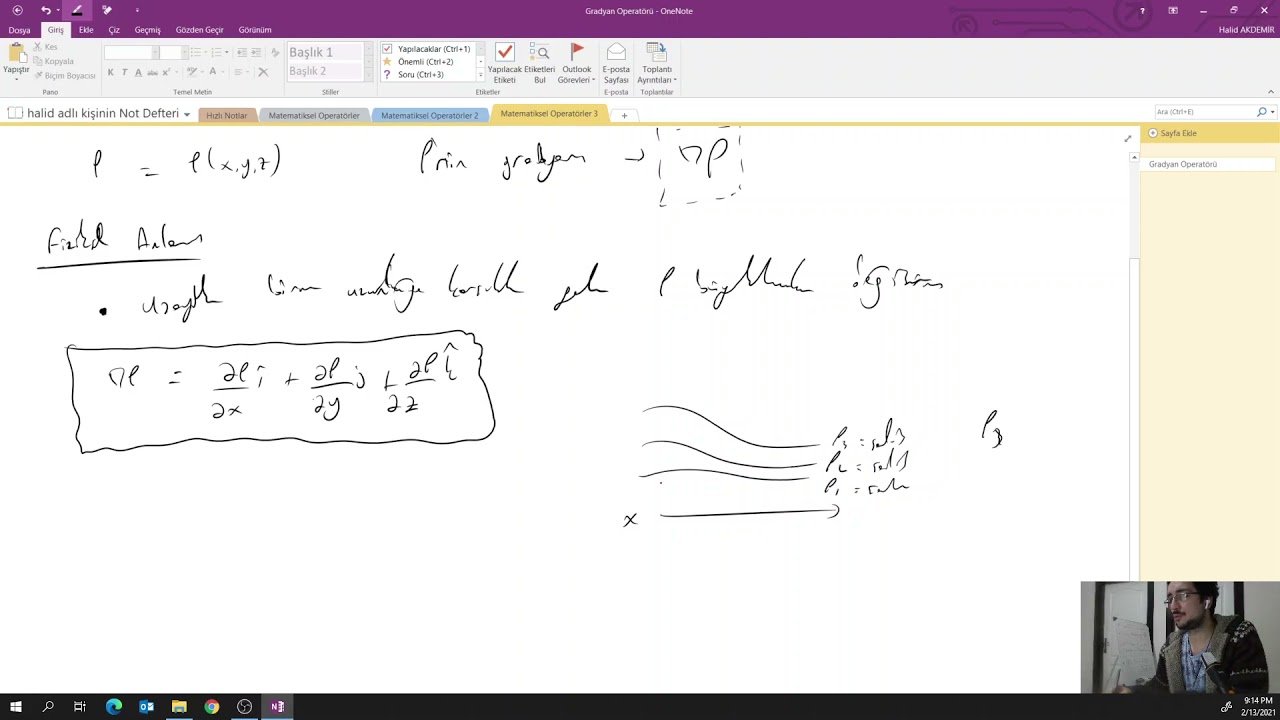 Gradyan Operatörü - OneNote
Halid AKDEMİR
Dosya Giriş Ekle Çiz Geçmiş Gözden Geçir Görünüm
Yapıştır
Kes
Kopyala
Biçim Boyacısı
Pano
K T A abc x²
Temel Metin
Başlık 1
Başlık 2
Stiller
Yapılacaklar (Ctrl+1)
Önemli (Ctrl+2)
Soru (Ctrl+3)
Yapılacak Etiketi
Etiketleri Bul
Etiketler
Outlook Görevleri
E-posta Sayfası
E-posta
Toplantı Ayrıntıları
Toplantılar
halid adlı kişinin Not Defteri
Hızlı Notlar
Matematiksel Operatörler
Matematiksel Operatörler 2
Matematiksel Operatörler 3
Ara (Ctrl+E)
Sayfa Ekle
Gradyan Operatörü
ρ = ρ(x,y,z) ρ'nin gradyanı → ∇ρ
Fiziksel Anlamı
• birim uzunluğa karşılık gelen ρ büyüklüğünün değişimi
∇ρ = ∂ρ/∂x î + ∂ρ/∂y ĵ + ∂ρ/∂z k̂
ρ3 = sabit3
ρ2 = sabit
ρ1 = sabit
ρ3
x
9:14 PM
2/13/2021